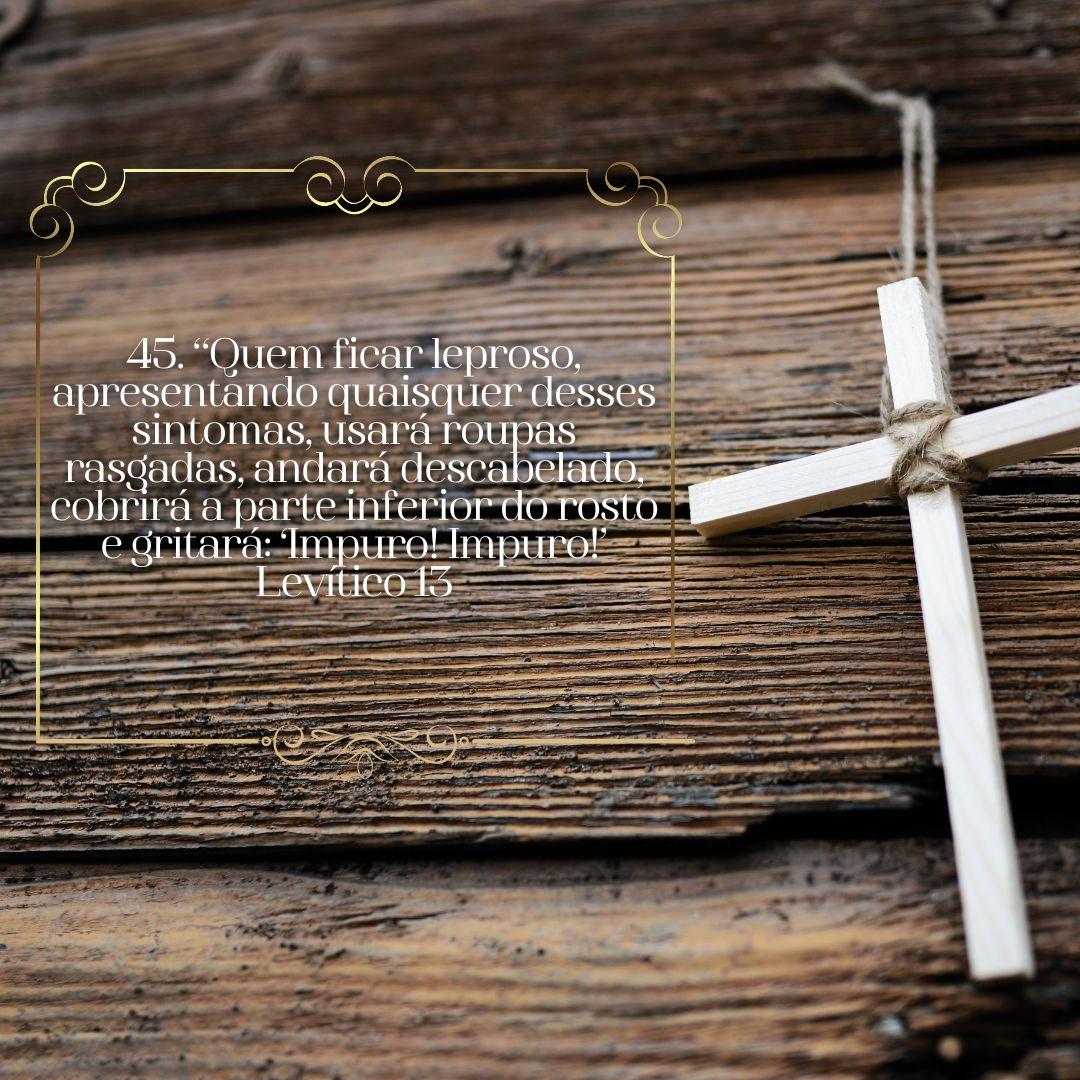 45. “Quem ficar leproso,
apresentando quaisquer desses
sintomas, usará roupas
rasgadas, andará descabelado,
cobrirá a parte inferior do rosto
e gritará: ‘Impuro! Impuro!’
Levítico 13